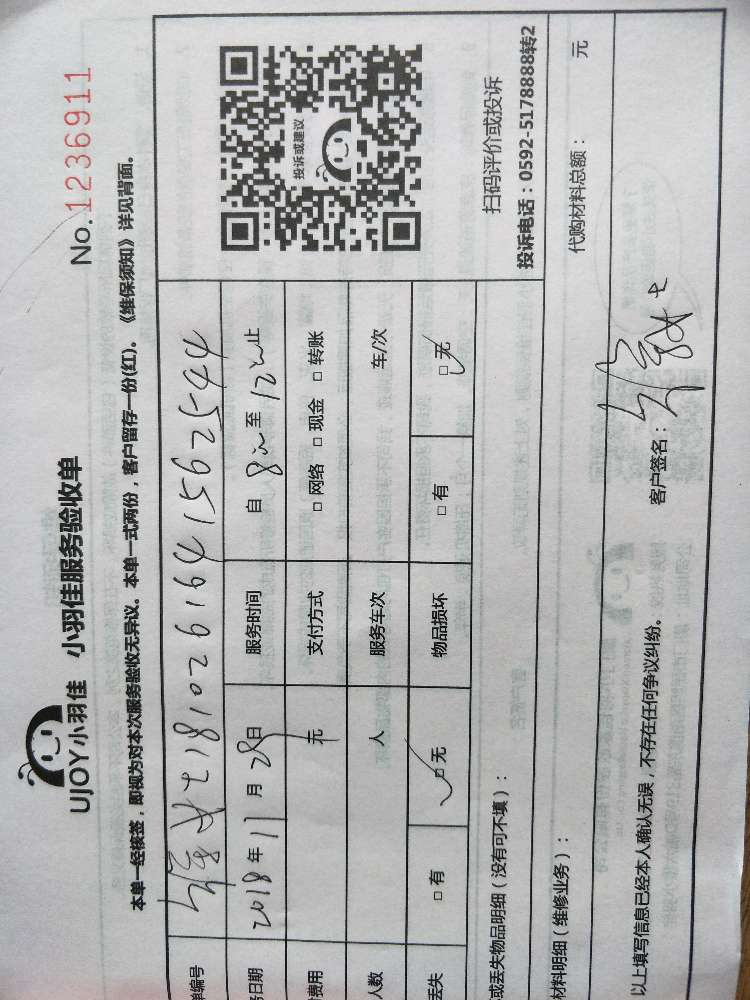 UJOY小羽佳 小羽佳服务验收单
No. 1236911
本单一经核签，即视为对本次服务验收无异议。本单一式两份，客户留存一份(红)。《维保须知》详见背面。
单编号 女士1810261641562544
务日期 2018年11月28日 服务时间 自 8:00至12:00止
费用 元 支付方式 □网络 □现金 □转账
人数 人 服务车次 车/次
丢失 □有 □无 物品损坏 □有 □无
投诉或建议
扫码评价或投诉
投诉电话：0592-5178888转2
或丢失物品明细（没有可不填）：
材料明细（维修业务）： 代购材料总额： 元
以上填写信息已经本人确认无误，不存在任何争议纠纷。 客户签名：